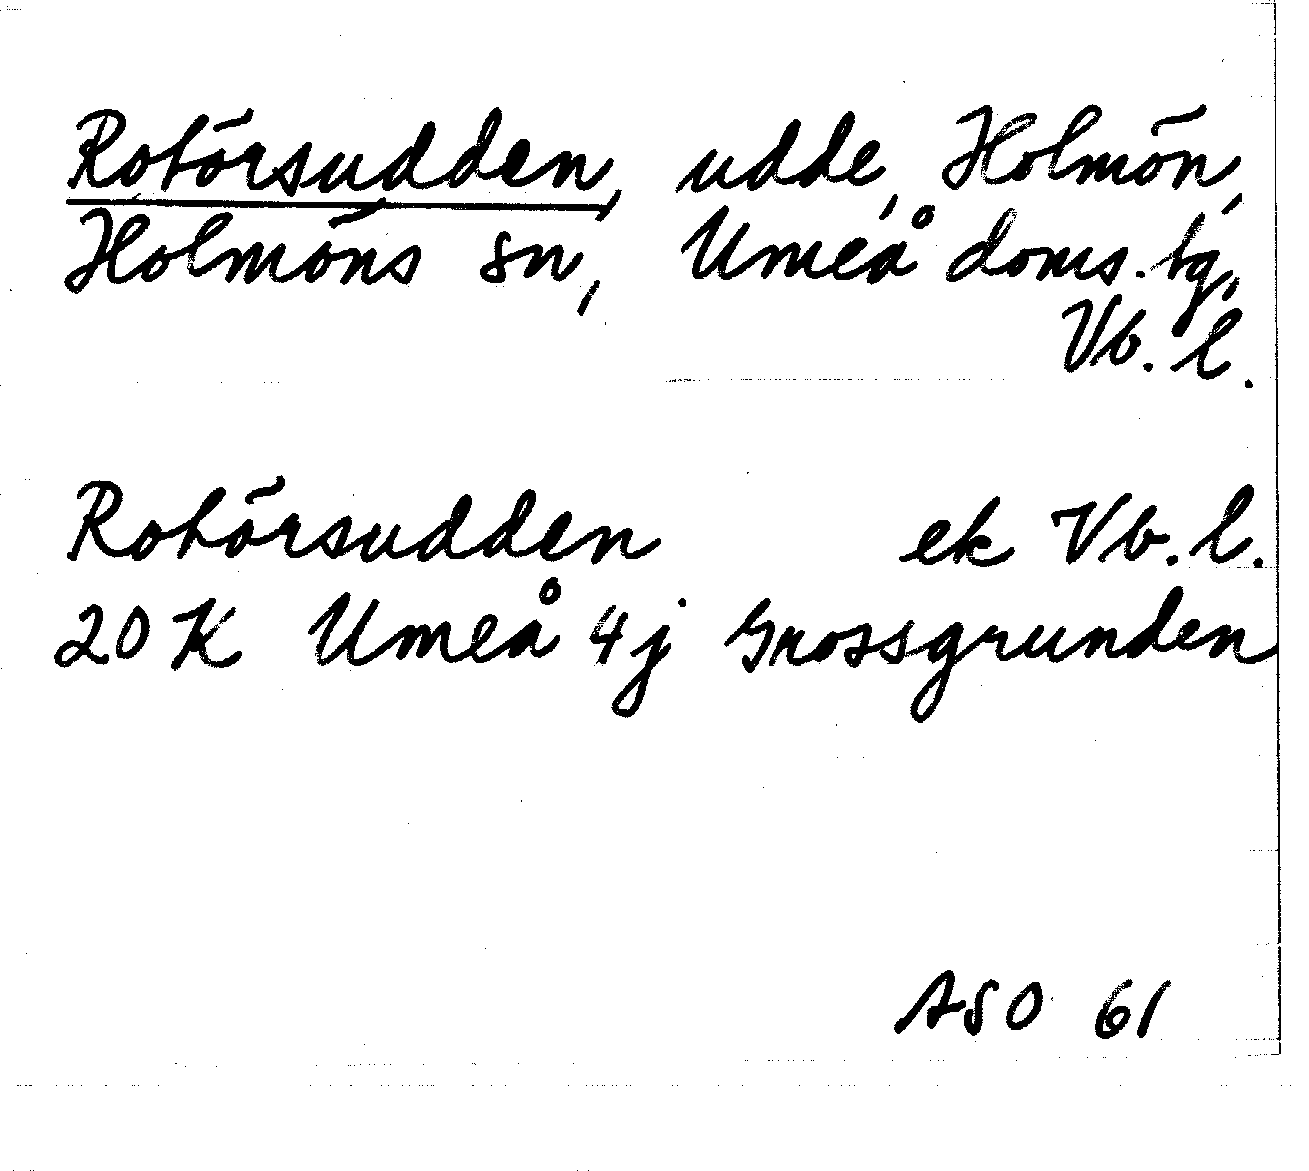 Rotörsudden, udde, Holmön,
Holmöns sn, Umeå doms. tg,
Vb. l.
Rotörsudden ek Vb. l.
20 K Umeå 4j Grossgrunden
ASO 61